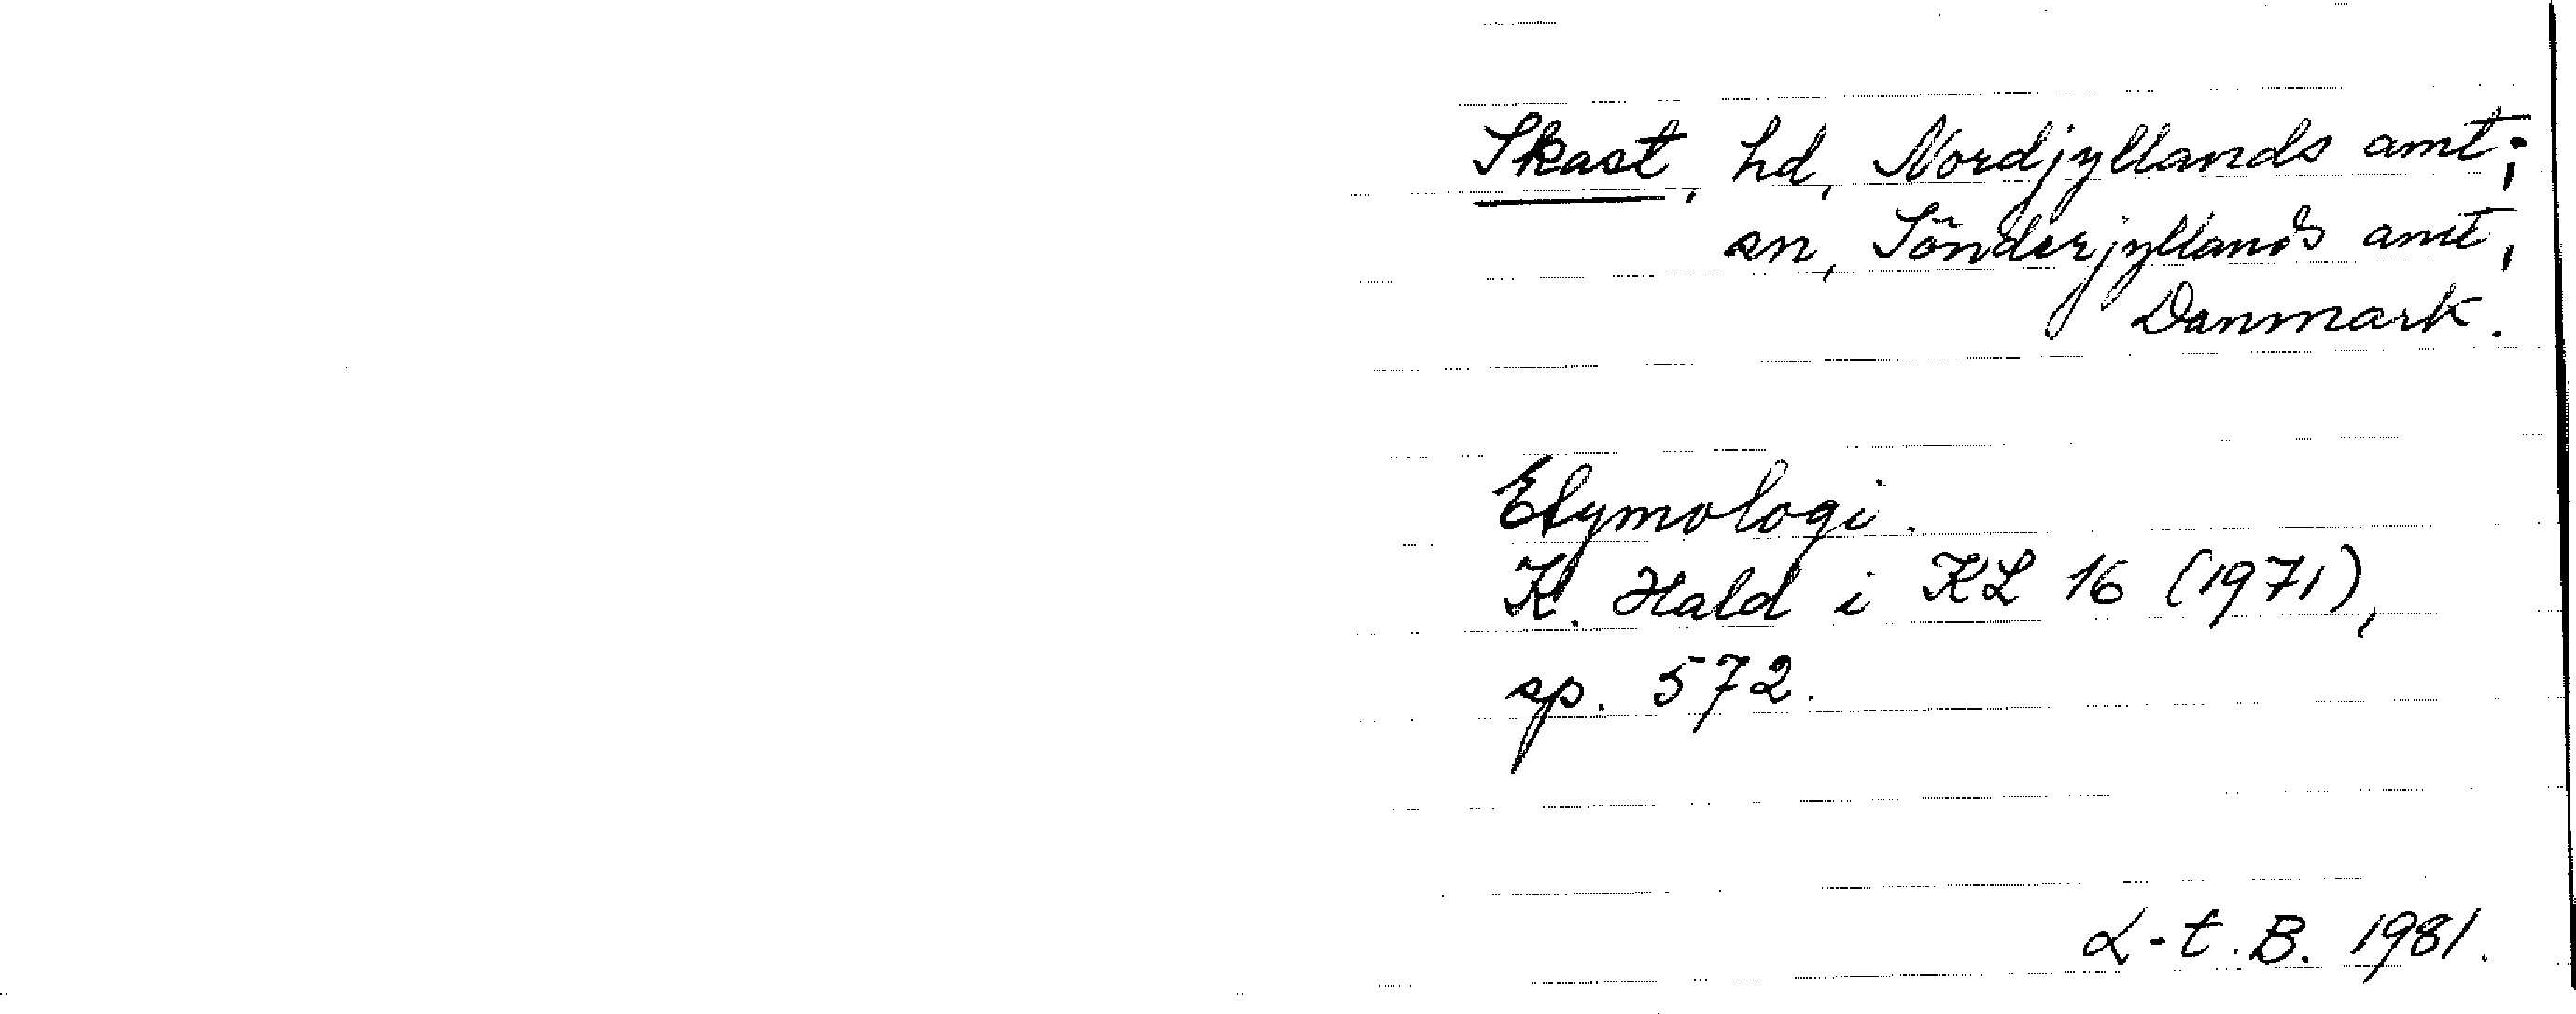 Skast, hd, Nordjyllands amt;
sn, Sönderjyllands amt,
Danmark.
Etymologi.
K. Hald i KL 16 (1971),
sp. 572.
L-t. B. 1981.